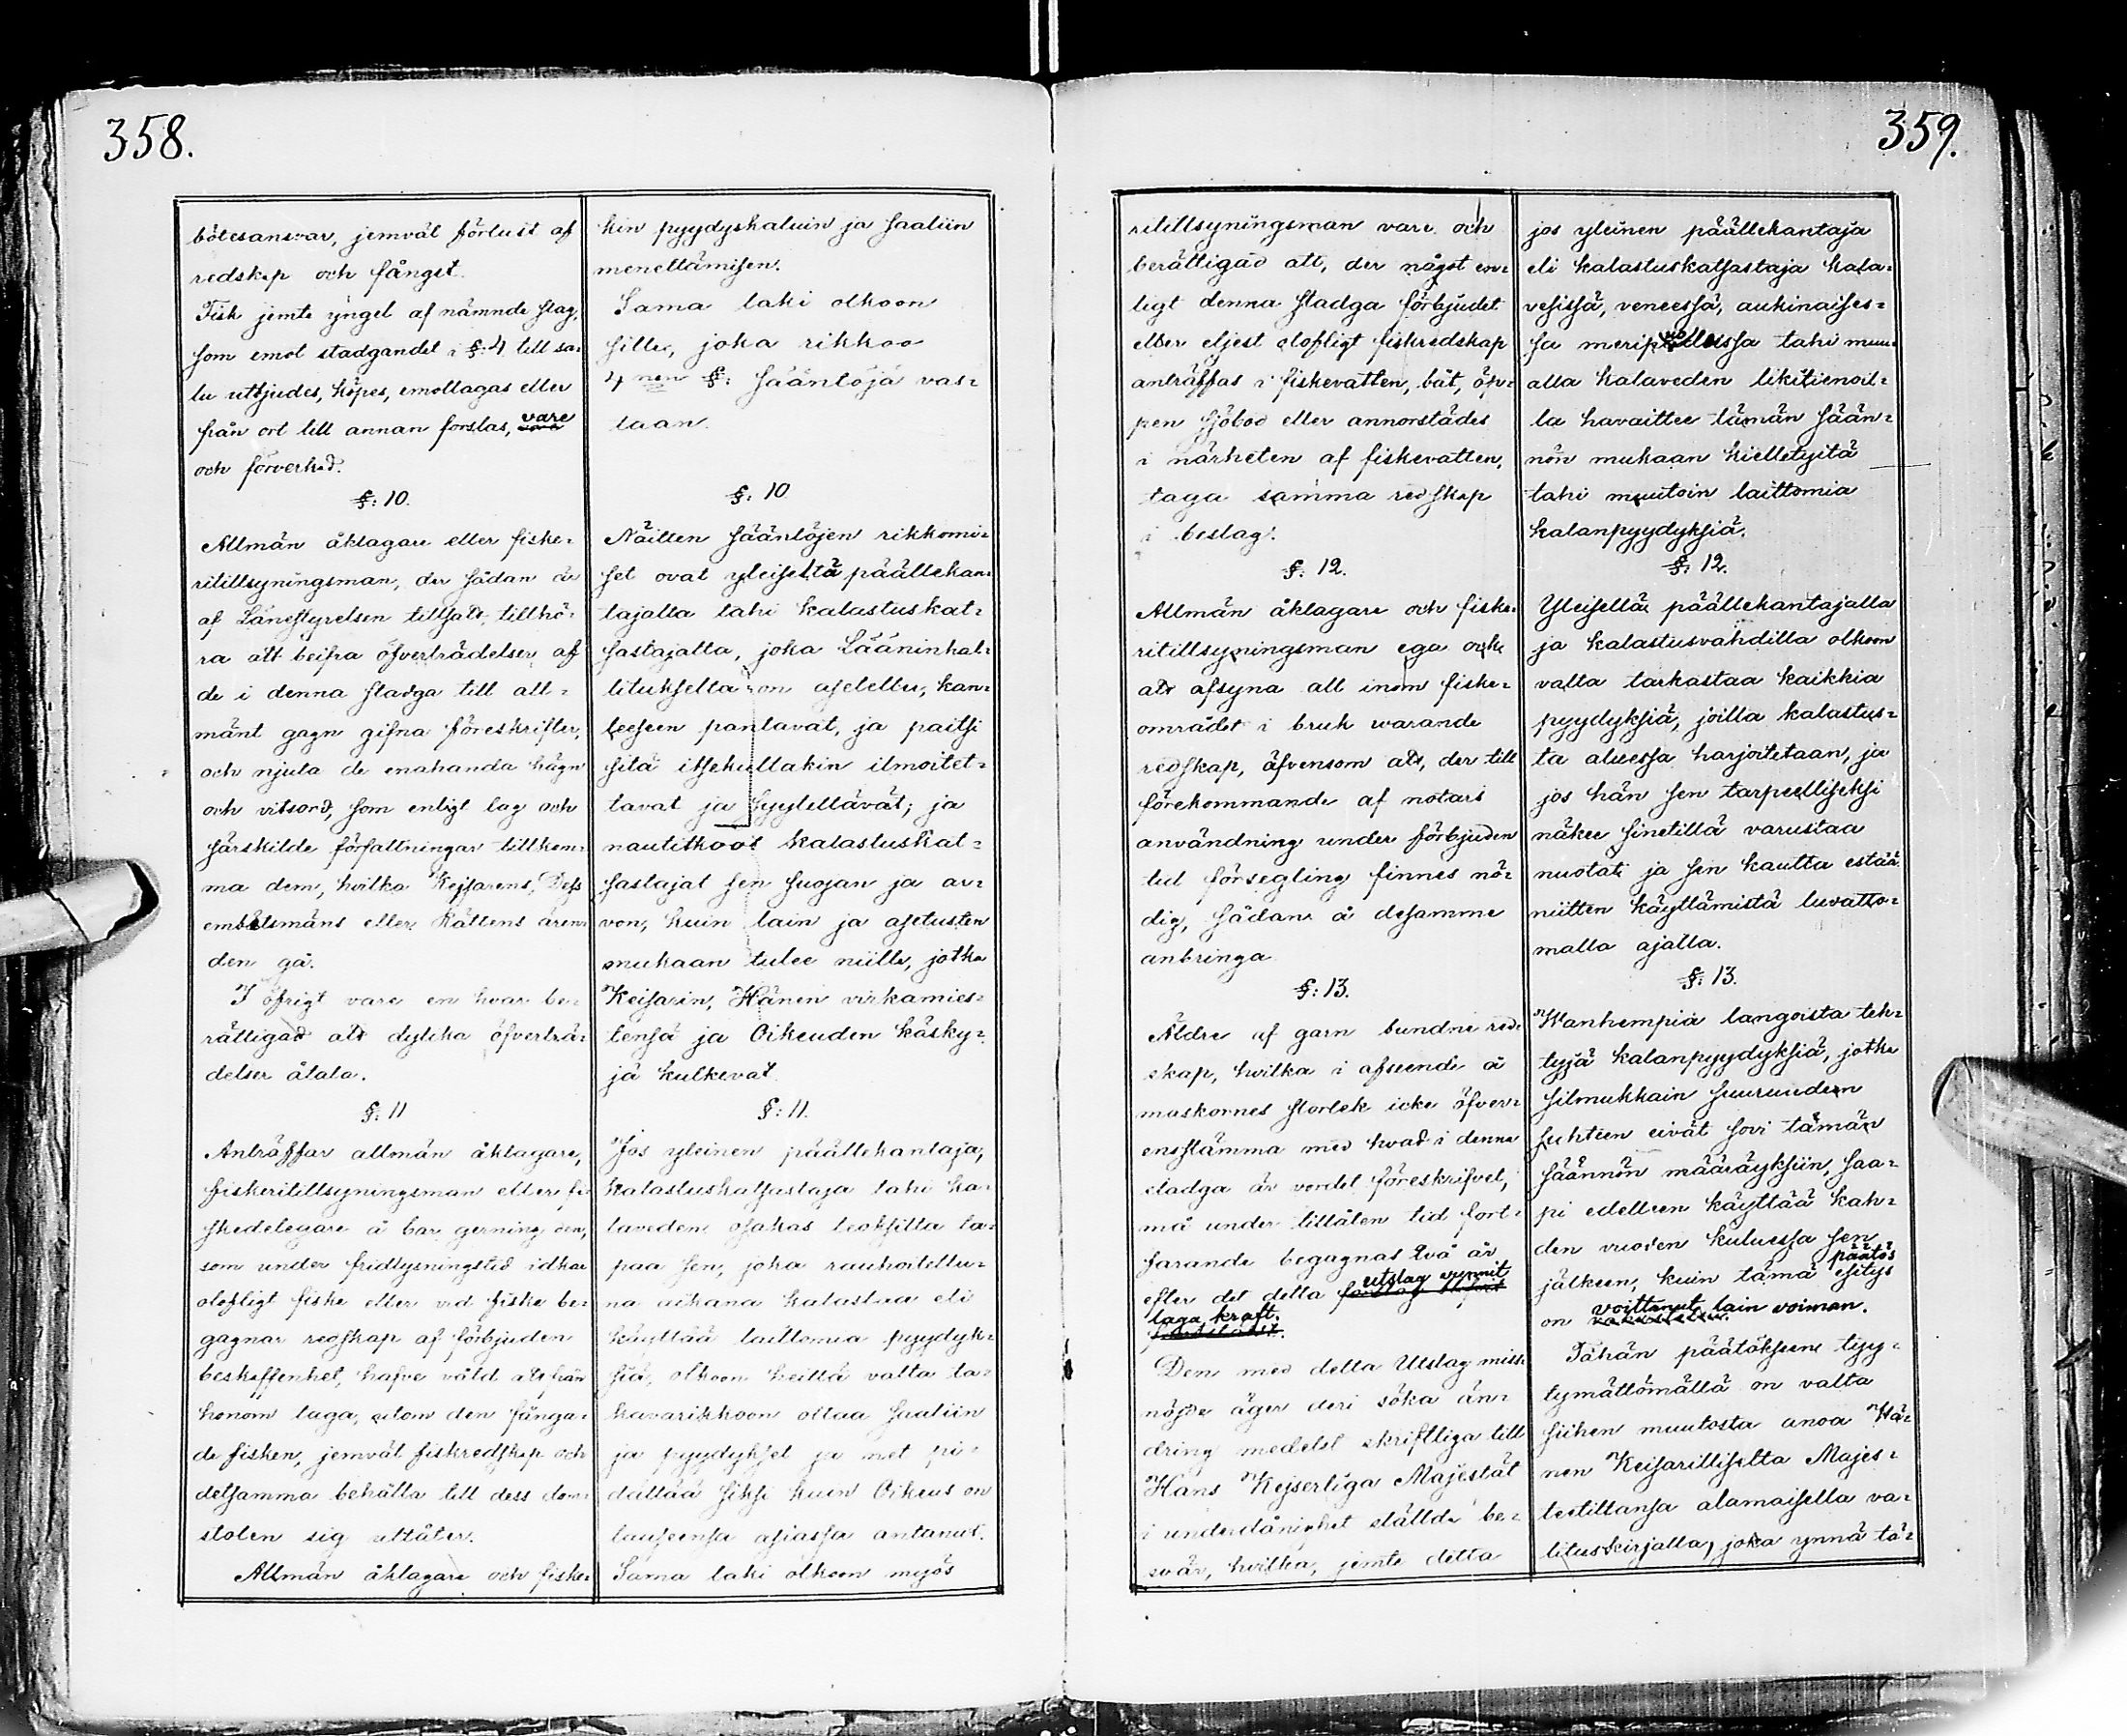 358.
bötesansvar, jemväl förlust af
redskap och fångst.
Fisk jemte yngel af nämnde slag,
som emot stadgandet i §: 4 till sa-
lu utbjudes, köpes, emottagas eller
från ort till annan forslas, vare
och förverkad.
§: 10.
Allmän åklagare eller fiske-
ritillsyningsman, der sådan är
af Länestyrelsen tillsatt, tillhö-
ra att beifra öfverträdelser af
de i denna stadga till all-
mänt gagn gifna föreskrifter,
och njuta de enahanda hägn
och vitsord, som enligt lag och
särskilde författningar tillkom-
ma dem, hvilka Kejsarens, Dess
embetsmäns eller Rättens ären-
den gå.
I öfrigt vare en hvar be-
rättigad att dylika öfverträ-
delser åtala.
§: 11
Anträffar allmän åklagare,
fiskeritillsyningsman eller fi-
skedelegare å bar gerning den,
som under fridlysningstid idkar
olofligt fiske eller vid fiske be-
gagnar redskap af förbjuden
beskaffenhet, hafve våld att från
honom taga, utom den fånga-
de fisken, jemväl fiskredskap och
detsamma behålla till dess dom-
stolen sig utlåter.
Allmän åklagare och fiske-
kin pyydyskaluin ja saaliin
menettämisen.
Sama laki olkoon
sille, joka rikkoo
4 nen §: sääntöjä vas-
taan.
§: 10.
Näitten sääntöjen rikkomi-
set ovat yleiseltä päällekan-
tajalta tahi kalastuskat-
sastajalta, joka Lääninhal-
lituksella on asetettu, kan-
teeseen pantavat, ja paitsi
sitä itsekullakin ilmoitet-
tavat ja syytettävät; ja
nautitkoot kalastuskat-
sastajat sen suojan ja ar-
von, kuin lain ja asetusten
mukaan tulee niille, jotka
Keisarin, Hänen virkamies-
tensä ja Oikeuden käsky-
jä kulkevat.
§: 11.
Jos yleinen päällekantaja,
kalastuskatsastaja tahi ka-
laveden osakas teoksilta ta-
paa sen, joka rauhoitettu-
na aikana kalastaa eli
käyttää laittomia pyydyk-
siä, olkoon heillä valta ta-
kavarikkoon ottaa saaliin
ja pyydykset ja net pi-
dättää siksi kuin Oikeus on
lauseensa asiassa antanut.
Sama laki olkoon myös
359.
ritillsyningsman vare och
berättigad att, der något en-
ligt denna stadga förbjudet
eller eljest olofligt fiskredskap
anträffas i fiskevatten, båt, öp-
pen sjöbod eller annorstädes
i närheten af fiskevatten,
taga samma redskap
i beslag.
§: 12.
Allmän åklagare och fiske-
ritillsyningsman ega ock
att afsyna all inom fiske-
området i bruk warande
redskap, äfvensom att, der till
förekommande af notars
användning under förbjuden
tid försegling finnes nö-
dig, sådan å desamme
anbringa.
§: 13.
Äldre af garn bundne red-
skap, hvilka i afseende å
maskornes storlek icke öfver-
ensstämma med hvad i denna
stadga är vordet föreskrifvet,
må under tillåten tid fort-
farande begagnas två år
efter det detta utslag vunnit
laga kraft.
Den med detta Utslag miss-
nöjde äger deri söka än-
dring medelst skriftliga till
Hans Kejserliga Majestät
i underdånighet ställde be-
svär, hvilka, jemte detta
jos yleinen päällekantaja
eli kalastuskatsastaja kala-
vesissä, veneessä, aukinaises-
sa tahi muu-
alla kalaveden likitienoil-
la havaittee tämän sään-
nön mukaan kiellettyitä
tahi muutoin laittomia
kalanpyydyksiä.
§: 12.
Yleisellä päällekantajalla
ja kalastusvahdilla olkoon
valta tarkastaa kaikkia
pyydyksiä, joilla kalastus-
ta alueessa harjoitetaan, ja
jos hän sen tarpeelliseksi
näkee sinetillä varustaa
nuotat ja sen kautta estää
niitten käyttämistä luvatto-
malla ajalla.
§: 13.
Wanhempia langoista teh-
tyjä kalanpyydyksiä, jotka
silmukkain suuruuden
suhteen eivät sovi tämän
säännön määräyksiin, saa-
pi edelleen käyttää kah-
den vuoden kuluessa sen
jälkeen, kuin tämä päätös
on voittanut lain voiman.
Tähän päätökseen tyy-
tymättömällä on valta
siihen muutosta anoa Hä-
nen Keisarilliselta Majes-
teetiltansa alamaisella va-
lituskirjalla, joka ynnä tä-